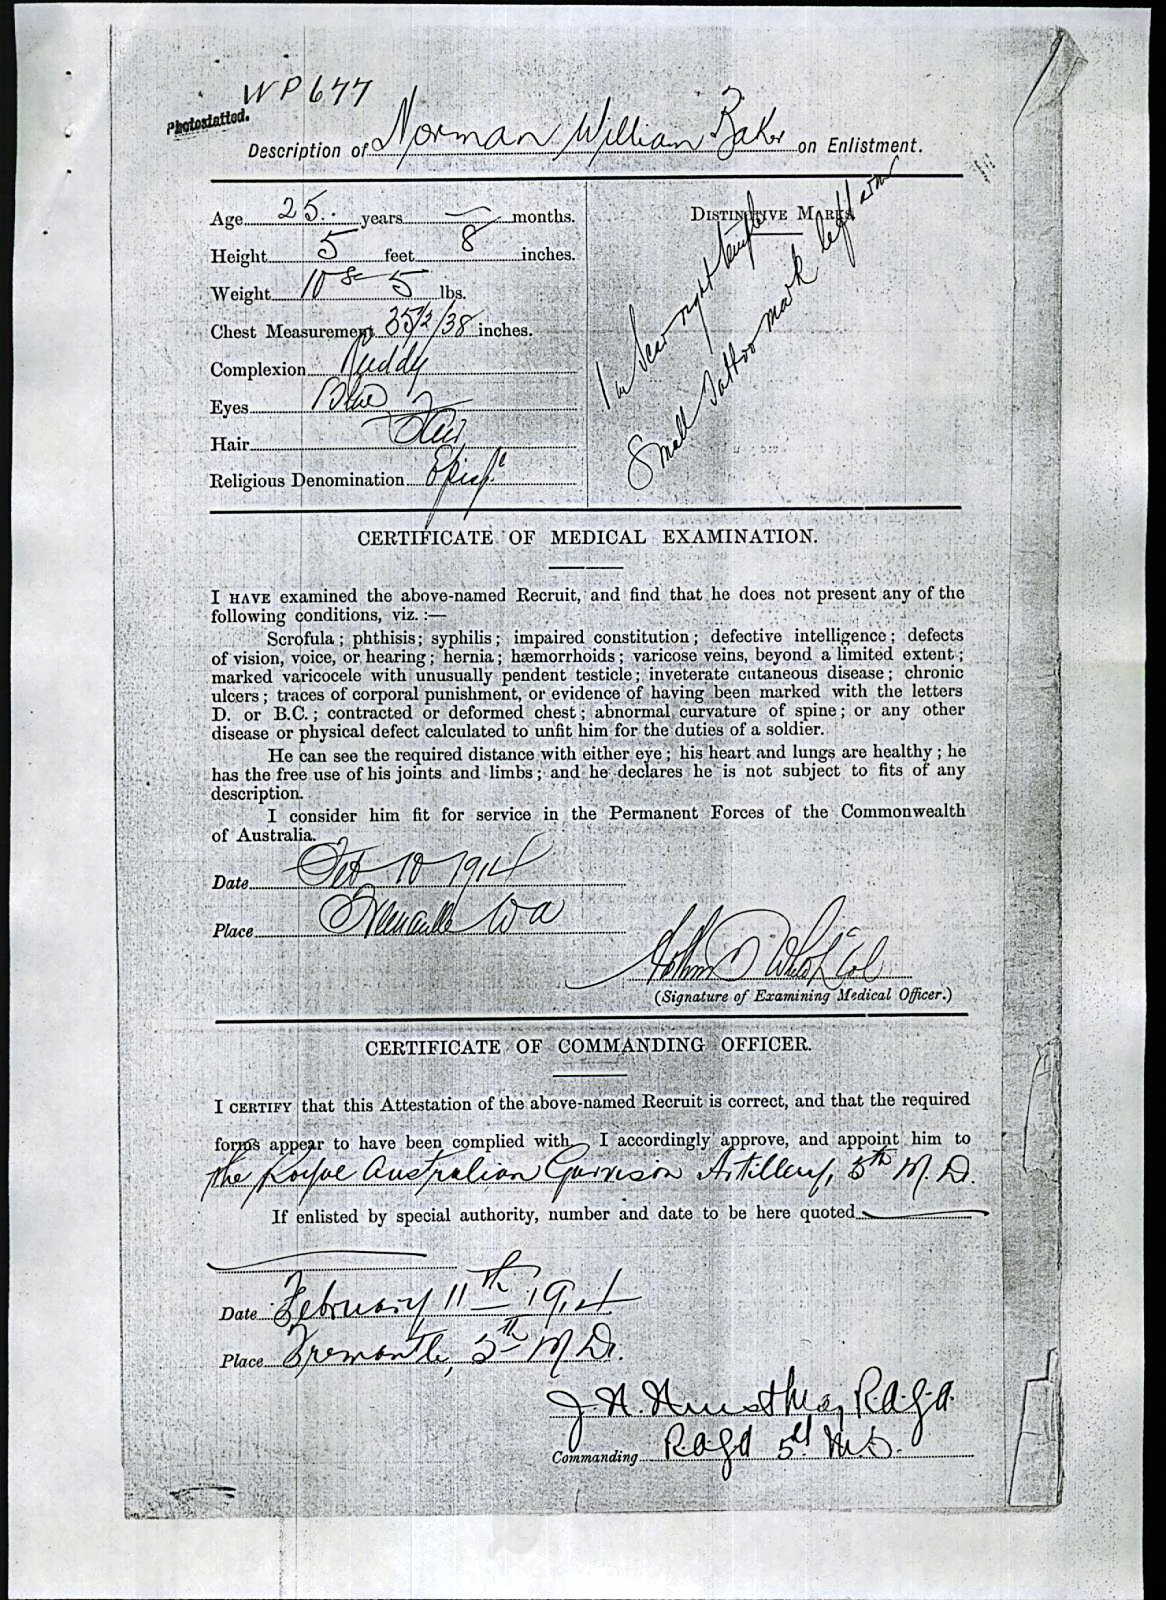 WP677
Photostatted.
Description of Norman William Baker on Enlistment.
Age 25 years — months.
Height 5 feet 8 inches.
Weight 10 st 5 lbs.
Chest Measurement 35½/38 inches.
Complexion Ruddy
Eyes Blue
Hair Fair
Religious Denomination
DISTINCTIVE MARKS
1 in Scar right temple
Small Tattoo mark left arm
CERTIFICATE OF MEDICAL EXAMINATION.
I HAVE examined the above-named Recruit, and find that he does not present any of the
following conditions, viz. :—
Scrofula ; phthisis ; syphilis ; impaired constitution ; defective intelligence ; defects
of vision, voice, or hearing ; hernia ; hæmorrhoids ; varicose veins, beyond a limited extent ;
marked varicocele with unusually pendent testicle ; inveterate cutaneous disease ; chronic
ulcers ; traces of corporal punishment, or evidence of having been marked with the letters
D. or B.C. ; contracted or deformed chest ; abnormal curvature of spine ; or any other
disease or physical defect calculated to unfit him for the duties of a soldier.
He can see the required distance with either eye ; his heart and lungs are healthy ; he
has the free use of his joints and limbs ; and he declares he is not subject to fits of any
description.
I consider him fit for service in the Permanent Forces of the Commonwealth
of Australia.
Date Feb 10 1914
Place Fremantle WA
(Signature of Examining Medical Officer.)
CERTIFICATE OF COMMANDING OFFICER.
I CERTIFY that this Attestation of the above-named Recruit is correct, and that the required
forms appear to have been complied with. I accordingly approve, and appoint him to
the Royal Australian Garrison Artillery, 5th M.D.
If enlisted by special authority, number and date to be here quoted
Date February 11th 1914
Place Fremantle, 5th M.D.
J. H. R.A.G.A.
Commanding R.A.G.A 5th M.D.